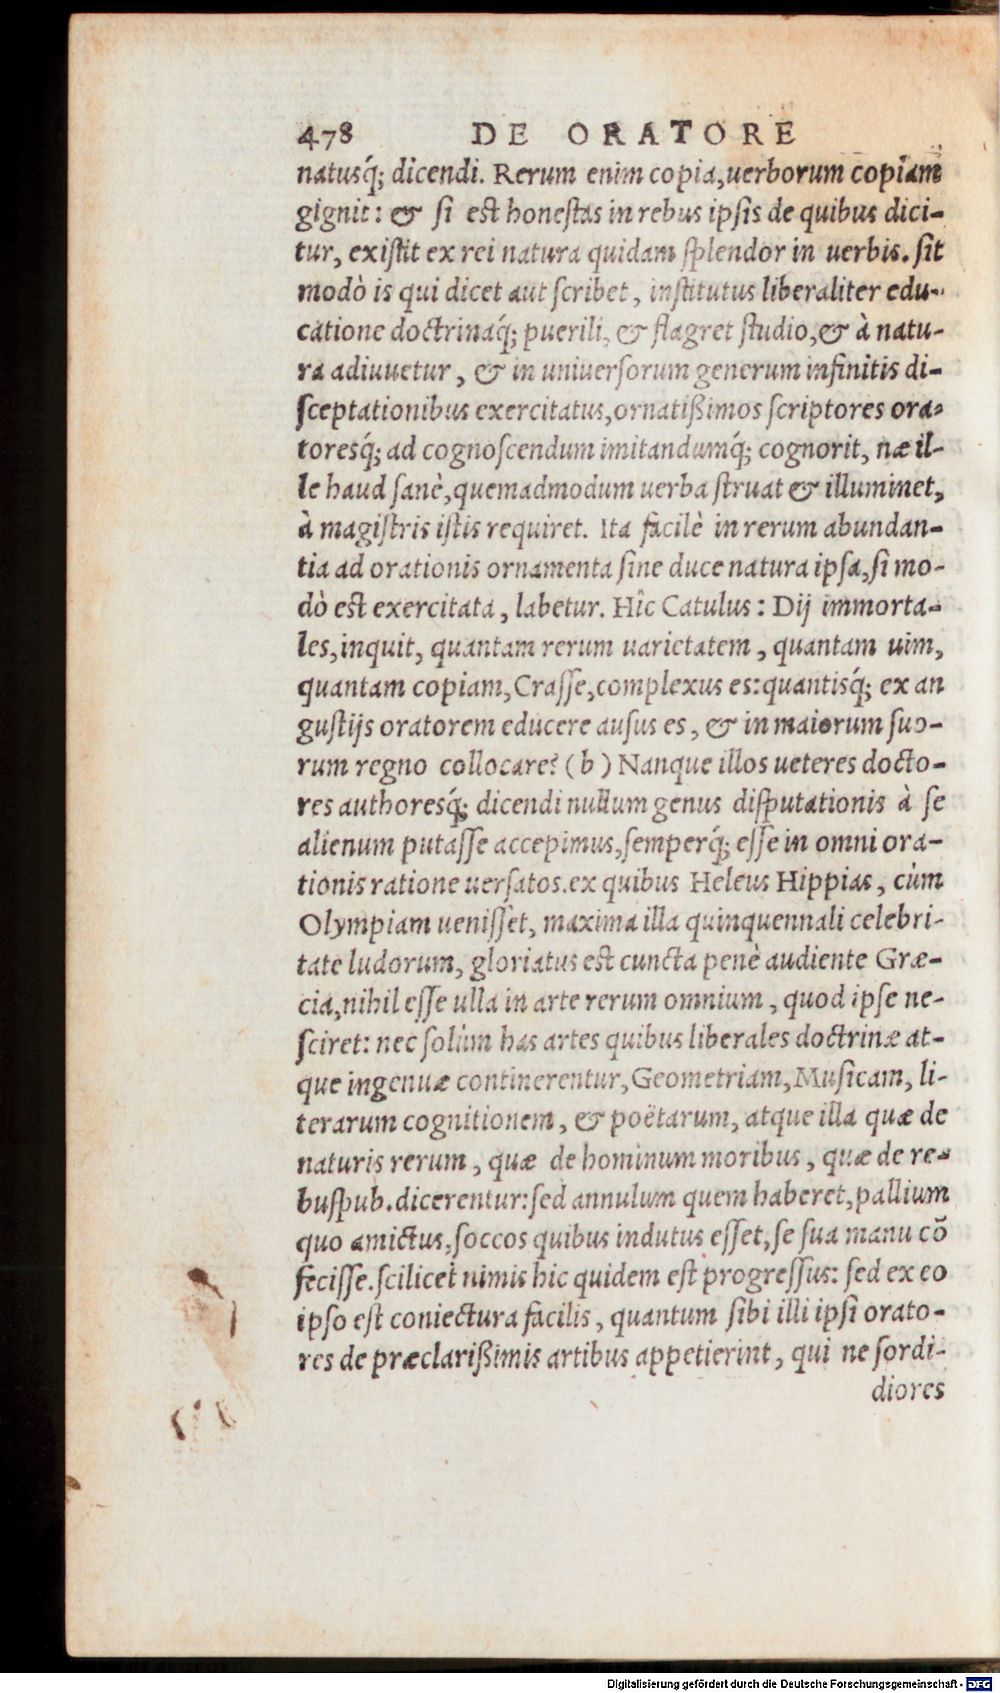 478 DE ORATORE
natusq́; dicendi. Rerum enim copia, uerborum copiam
gignit: & ſi eſt honeſtas in rebus ipſis de quibus dici-
tur, exiſtit ex rei natura quidam ſplendor in uerbis. ſit
modò is qui dicet aut ſcribet, inſtitutus liberaliter edu-
catione doctrinaq́; puerili, & flagret ſtudio, & à natu-
ra adiuuetur, & in uniuerſorum generum infinitis di-
ſceptationibus exercitatus, ornatißimos ſcriptores ora-
toresq́; ad cognoſcendum imitandumq́; cognorit, næ il-
le haud ſanè, quemadmodum uerba ſtruat & illuminet,
à magiſtris iſtis requiret. Ita facilè in rerum abundan-
tia ad orationis ornamenta ſine duce natura ipſa, ſi mo-
dò eſt exercitata, labetur. Hîc Catulus: Dij immorta-
les, inquit, quantam rerum uarietatem, quantam uim,
quantam copiam, Craſſe, complexus es: quantisq́; ex an
guſtijs oratorem educere auſus es, & in maiorum ſuo-
rum regno collocare? (b) Nanque illos ueteres docto-
res authoresq́; dicendi nullum genus diſputationis à ſe
alienum putaſſe accepimus, ſemperq́; eſſe in omni ora-
tionis ratione uerſatos. ex quibus Heleus Hippias, cùm
Olympiam ueniſſet, maxima illa quinquennali celebri-
tate ludorum, gloriatus eſt cuncta penè audiente Græ-
cia, nihil eſſe ulla in arte rerum omnium, quod ipſe ne-
ſciret: nec ſolùm has artes quibus liberales doctrinæ at-
que ingenuæ continerentur, Geometriam, Muſicam, li-
terarum cognitionem, & poëtarum, atque illa quæ de
naturis rerum, quæ de hominum moribus, quæ de re-
buſpub. dicerentur: ſed annulum quem haberet, pallium
quo amictus, ſoccos quibus indutus eſſet, ſe ſua manu cõ
feciſſe. ſcilicet nimis hic quidem eſt progreſſus: ſed ex eo
ipſo eſt coniectura facilis, quantum ſibi illi ipſi orato-
res de præclarißimis artibus appetierint, qui ne ſordi-
diores
Digitalisierung gefördert durch die Deutsche Forschungsgemeinschaft - DFG